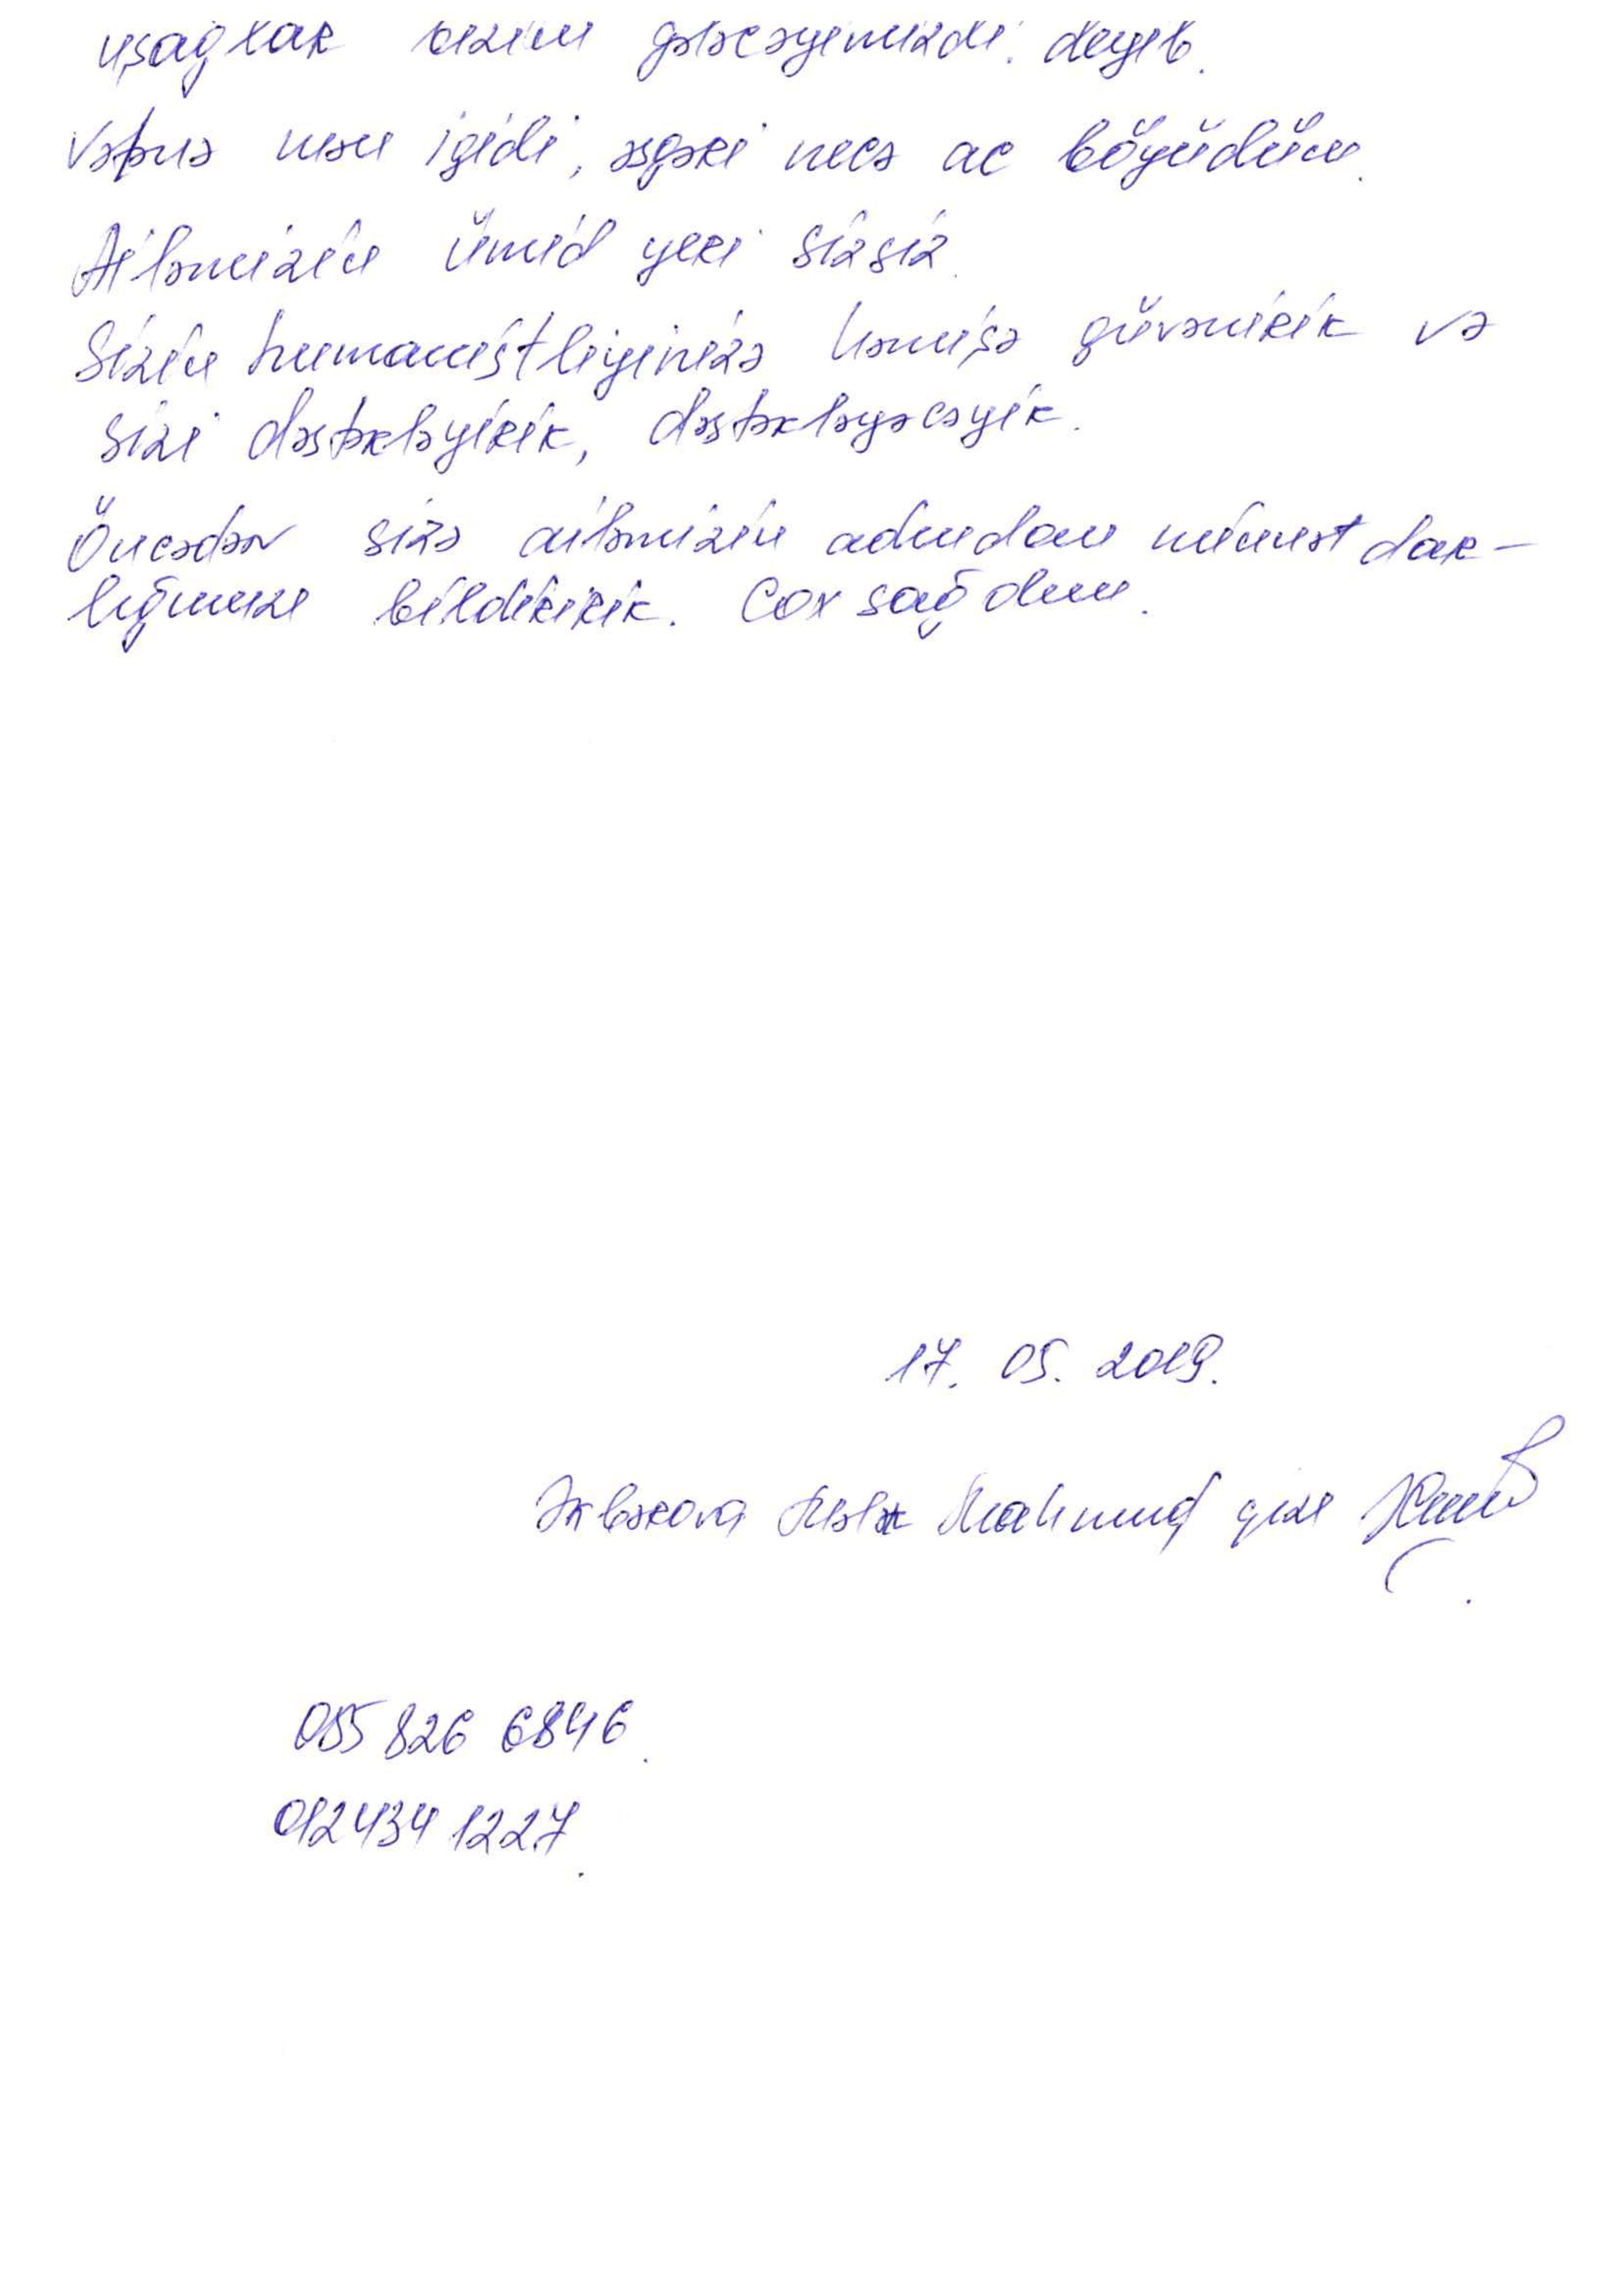 uşaqlar bizim gələcəyimizdi. deyib.
Vətənə mən igidi, əsgəri necə ac böyüdüm.
Ailəmizin ümid yeri sizsiz.
Sizin humanistliyinizə həmişə güvənirik və
sizi dəstəkləyirik, dəstəkləyəcəyik.
Öncədən sizə ailəmizin adından minnət dar-
lığımızı bildiririk. Çox sağ olun.
17. 05. 2019.
Əkbərova Mahmud qızı
055 826 6846.
012 434 1227.